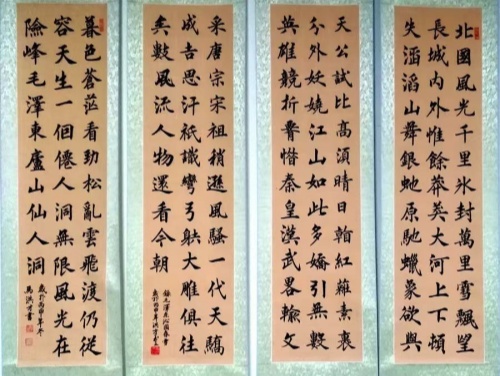 北國風光千里冰封萬里雪飄望
長城内外惟餘莽莽大河上下頓
失滔滔山舞銀蛇原馳蠟象欲與
天公試比高須晴日紅素裹
分外妖嬈江山如此多嬌引無數
英雄競折惜秦皇漢武畧輸文
采唐宗宋祖稍遜風騷一代天驕
成吉思汗祇識彎弓射大雕俱往
矣數風流人物還看今朝
錄毛澤東沁園春雪
歲於丙申年洪書
暮色蒼茫看勁松亂雲飛渡仍從
容天生一個僊人洞無限風光在
險峰毛澤東廬山仙人洞
歲於丙申年冬
馬洪書